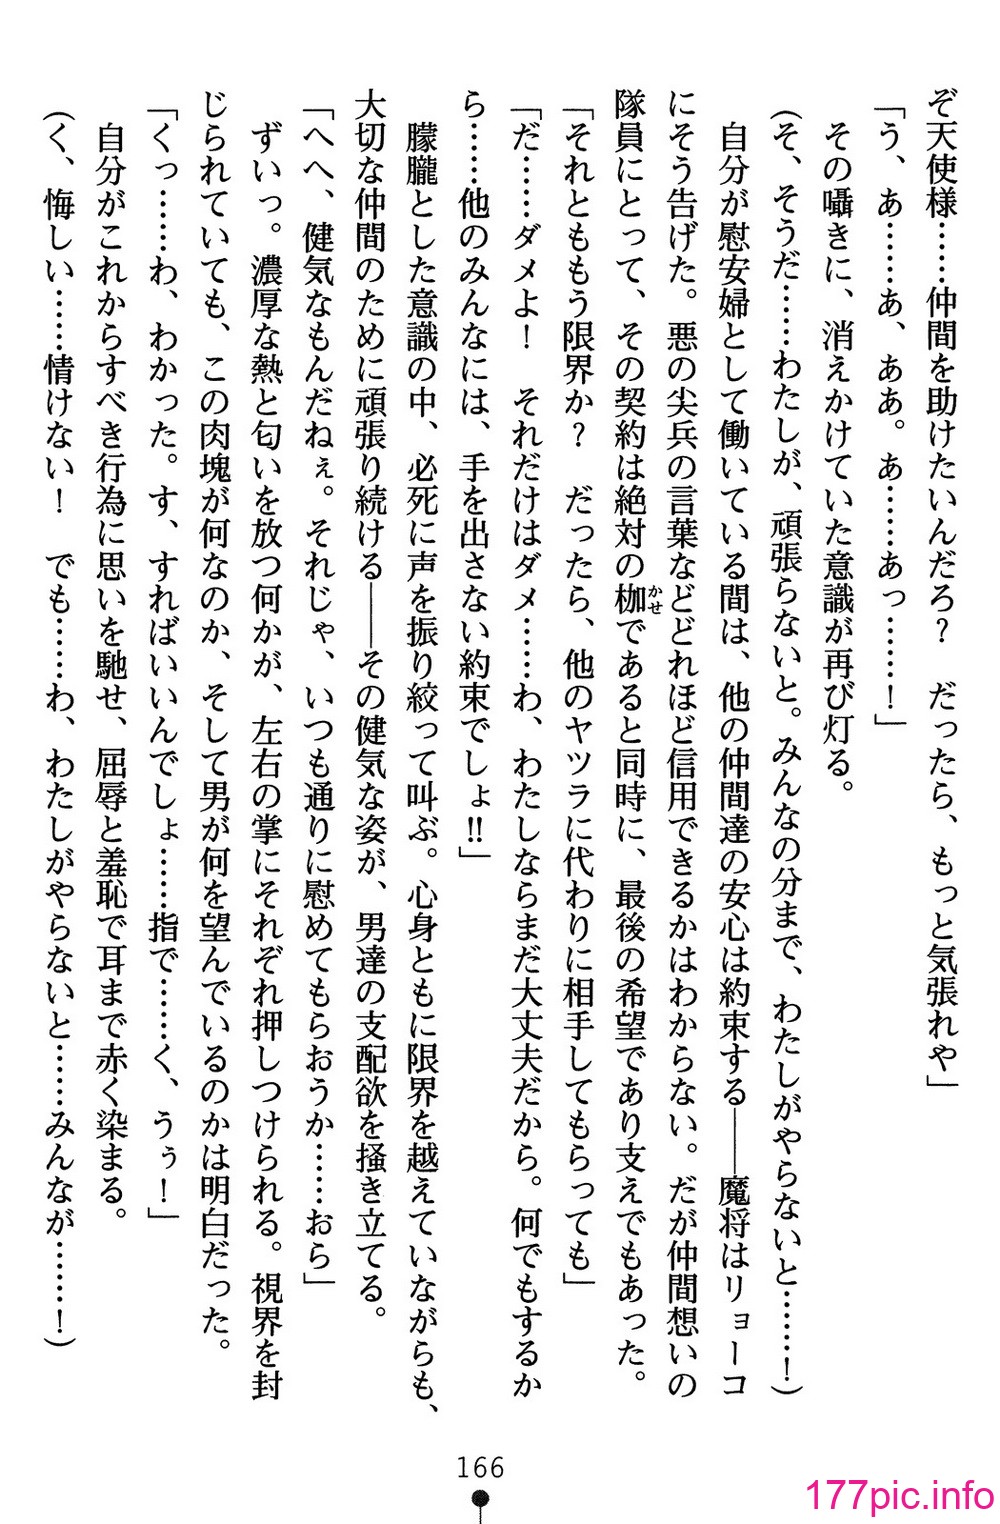 ぞ天使様……仲間を助けたいんだろ？　だったら、もっと気張れや」
「う、あ……あ、ああ。あ……あっ……！」
　その囁きに、消えかけていた意識が再び灯る。
（そ、そうだ……わたしが、頑張らないと。みんなの分まで、わたしがやらないと……！）
　自分が慰安婦として働いている間は、他の仲間達の安心は約束する――魔将はリョーコ
にそう告げた。悪の尖兵の言葉などどれほど信用できるかはわからない。だが仲間想いの
隊員にとって、その契約は絶対の枷かせであると同時に、最後の希望であり支えでもあった。
「それとももう限界か？　だったら、他のヤツラに代わりに相手してもらっても」
「だ……ダメよ！　それだけはダメ……わ、わたしならまだ大丈夫だから。何でもするか
ら……他のみんなには、手を出さない約束でしょ‼」
　朦朧とした意識の中、必死に声を振り絞って叫ぶ。心身ともに限界を越えていながらも、
大切な仲間のために頑張り続ける――その健気な姿が、男達の支配欲を掻き立てる。
「へへ、健気なもんだねぇ。それじゃ、いつも通りに慰めてもらおうか……おら」
　ずいっ。濃厚な熱と匂いを放つ何かが、左右の掌にそれぞれ押しつけられる。視界を封
じられていても、この肉塊が何なのか、そして男が何を望んでいるのかは明白だった。
「くっ……わ、わかった。す、すればいいんでしょ……指で……く、うぅ！」
　自分がこれからすべき行為に思いを馳せ、屈辱と羞恥で耳まで赤く染まる。
（く、悔しい……情けない！　でも……わ、わたしがやらないと……みんなが……！）
166
177pic.info